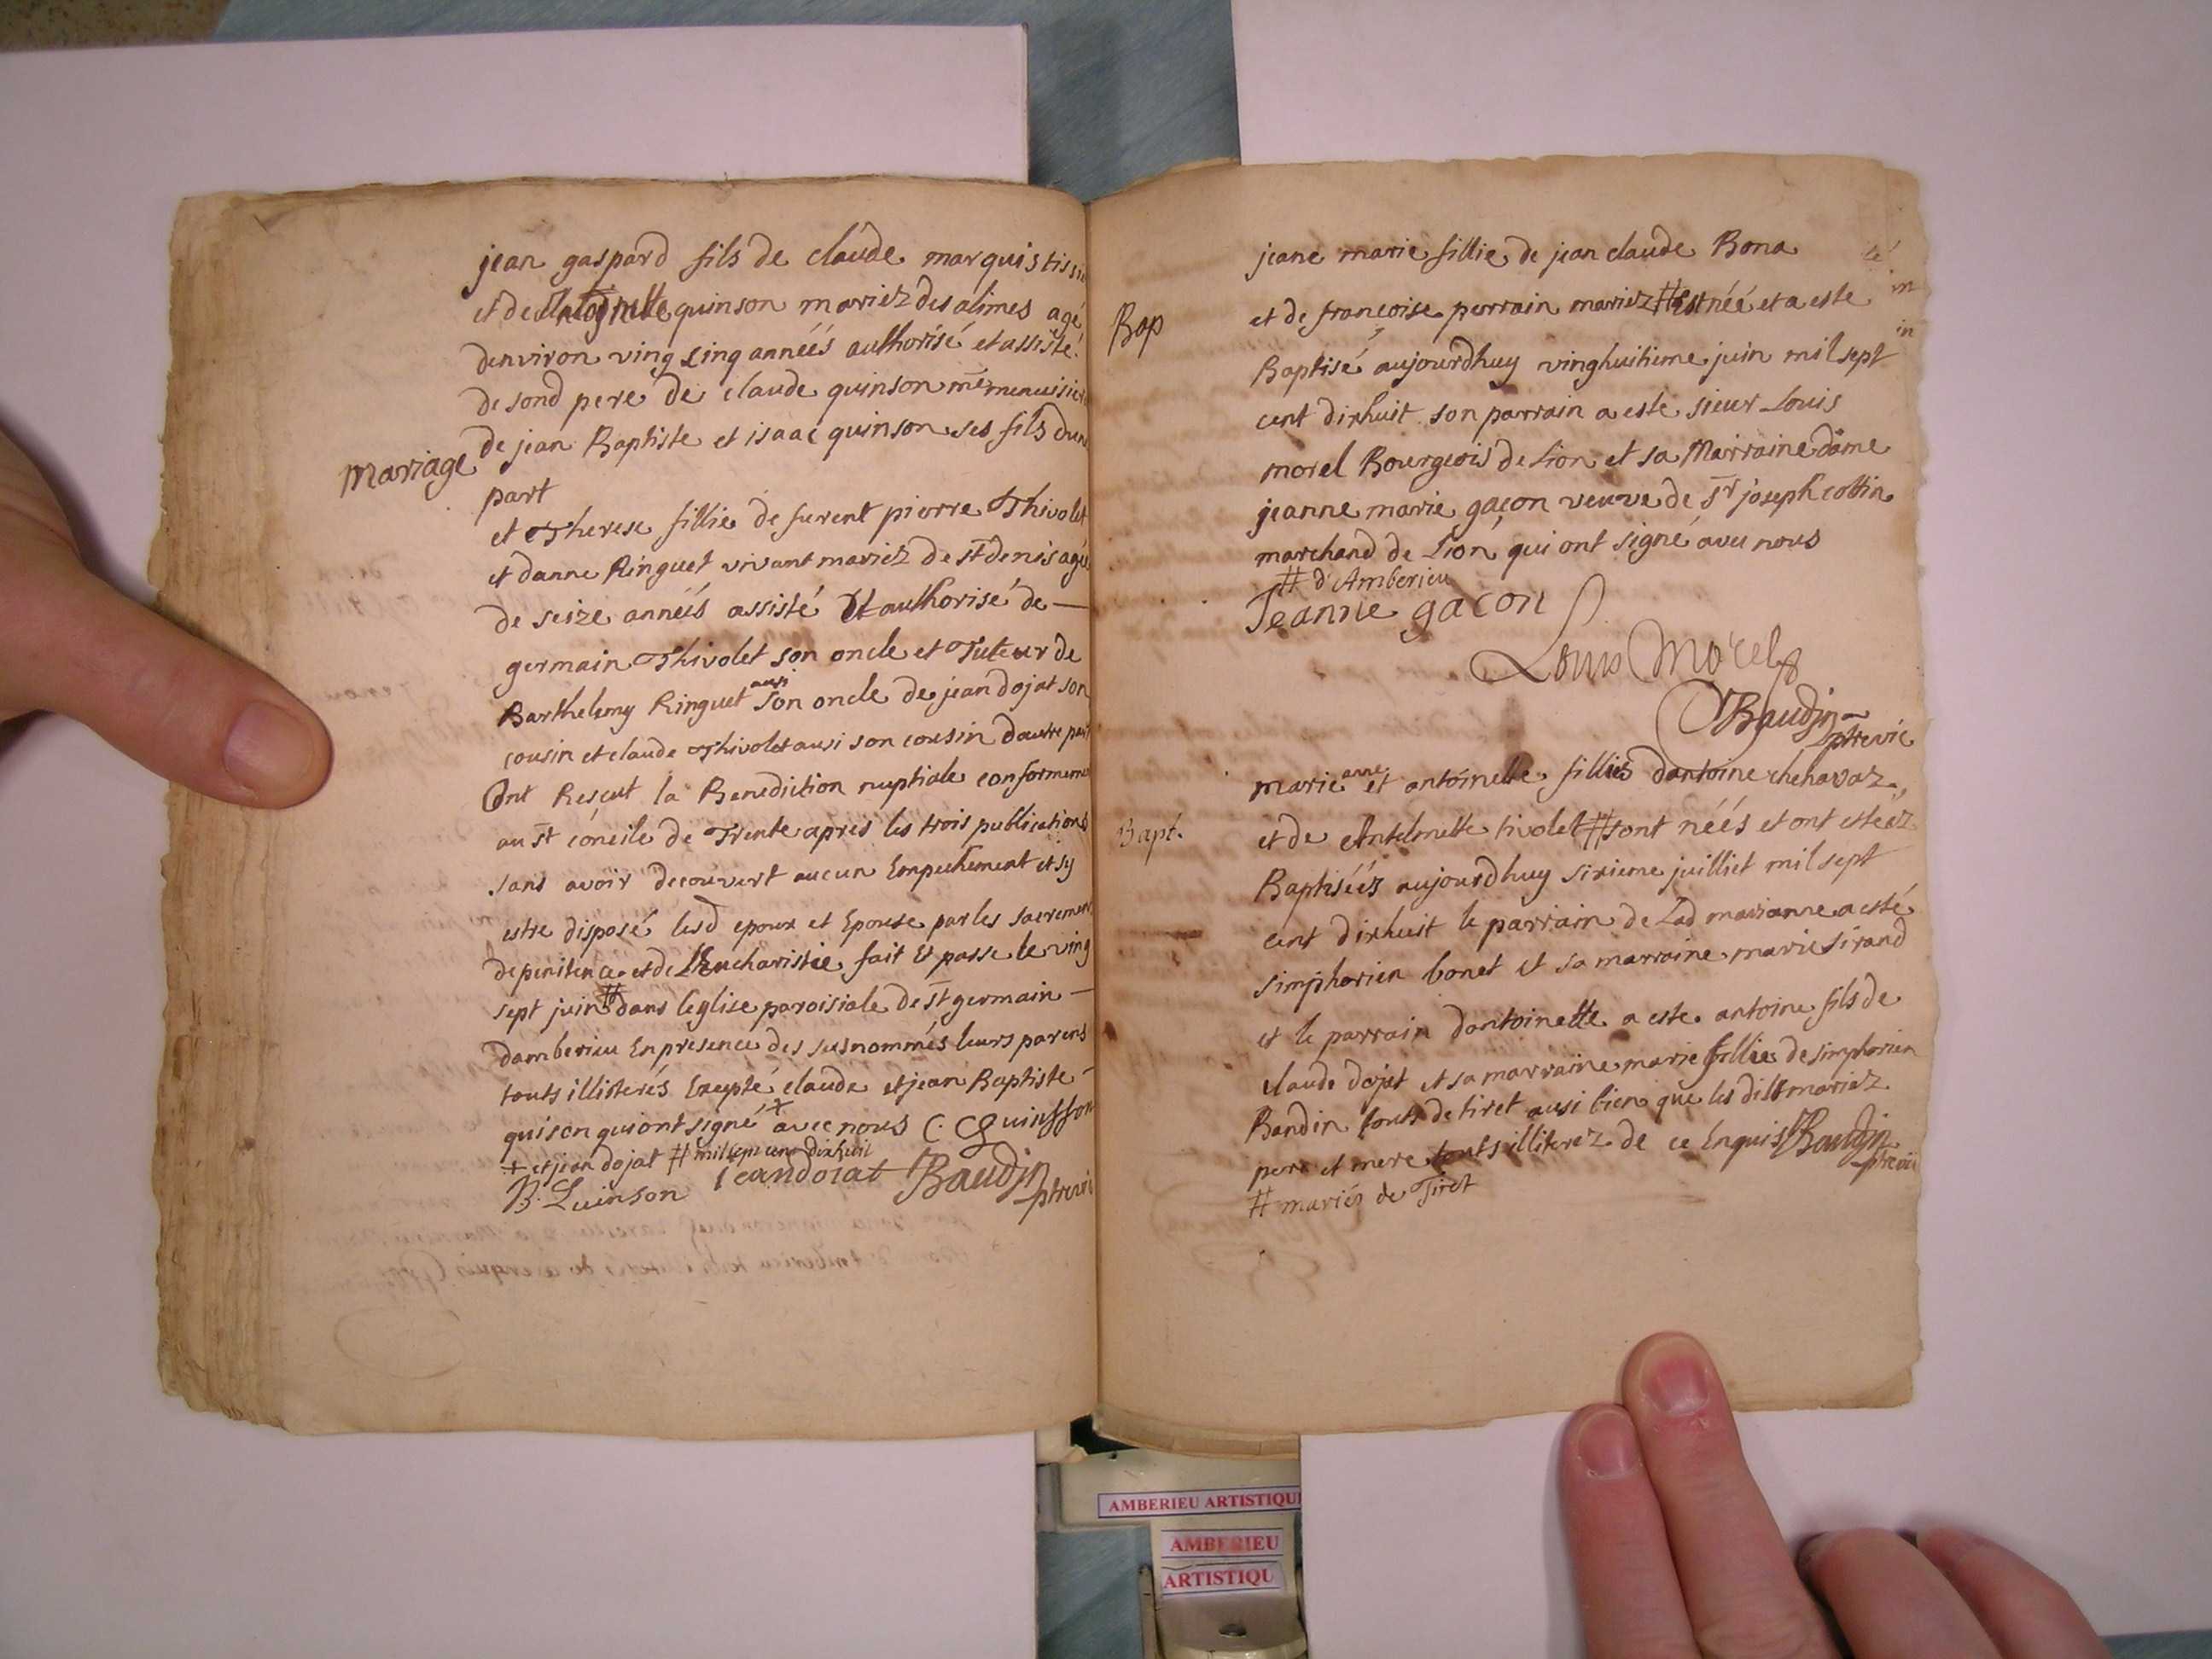 jean gaspard fils de claude marquis tissie
et de quinson mariez des alimes agé
denviron ving cinq années authorisé et assisté
de sond pere de claude quinson mre menuisier
de jean Baptiste et isaac quinson ses fils dune
Mariage
part
et Therese fillie de furent pierre Thivolet
et danne Ringuet vivant mariez de st denis agée
de seize années assisté Et authorisé de —
germain Thivolet son oncle et Tuteur de
Barthelemy Ringuet ausi son oncle de jean dojat son
cousin et claude Thivolet ausi son cousin dautre part
Ont Resçut la Benediction nuptiale conformeme
au st concile de Trente apres les trois publications
sans avoir decouvert aucun Empechement et sy
estre disposé lesd epoux et Epouse par les sacremens
de penitence et de LEucharistie fait Et passe le ving
sept juin # dans leglise paroisiale de st germain —
damberieu En présence des susnommés leurs parens
touts illisterés Exepté claude et jean Baptiste -
quison qui ont signé + avec nous C. Cguinsson
+ et jean dojat # mil sept cent dixhuit
B. Quinson Jean doiat Baudin
ptrevic
jeane marie fillie de jean claude Bona
Bap
et de francoise perrain mariez # Est née et a este
Baptisé aujourdhuy vinghuitieme juin mil sept
cent dixhuit son parrain a este sieur Louis
morel Bourgeois de Lion et sa Marraine dame
jeanne marie gacon veuve de sr joseph cottin
marchand de Lion qui ont signé avec nous
# d'Amberieu
Jeanne gacon
Louis Morel
Baudin
ptrevic
marie anne et antoinette fillies dantoine chenavaz
Bapt.
et de Antelmette tivolet # sont néés et ont esteéz
Baptiséés aujourdhuy sixieme juilliet mil sept
cent dixhuit le parrain de Lad marianne a esté
simphorien bonet et sa marraine marie sirand
et le parrain dantoinette a este antoine fils de
claude dojat et sa marraine marie fillie de simphorien
Bandin touts de tiret ausi bien que les dits mariez
pere et mere touts illiterez de ce Enquis Baudin
ptrevic
# mariés de Tiret
AMBERIEU ARTISTIQU
AMBERIEU
ARTISTIQU